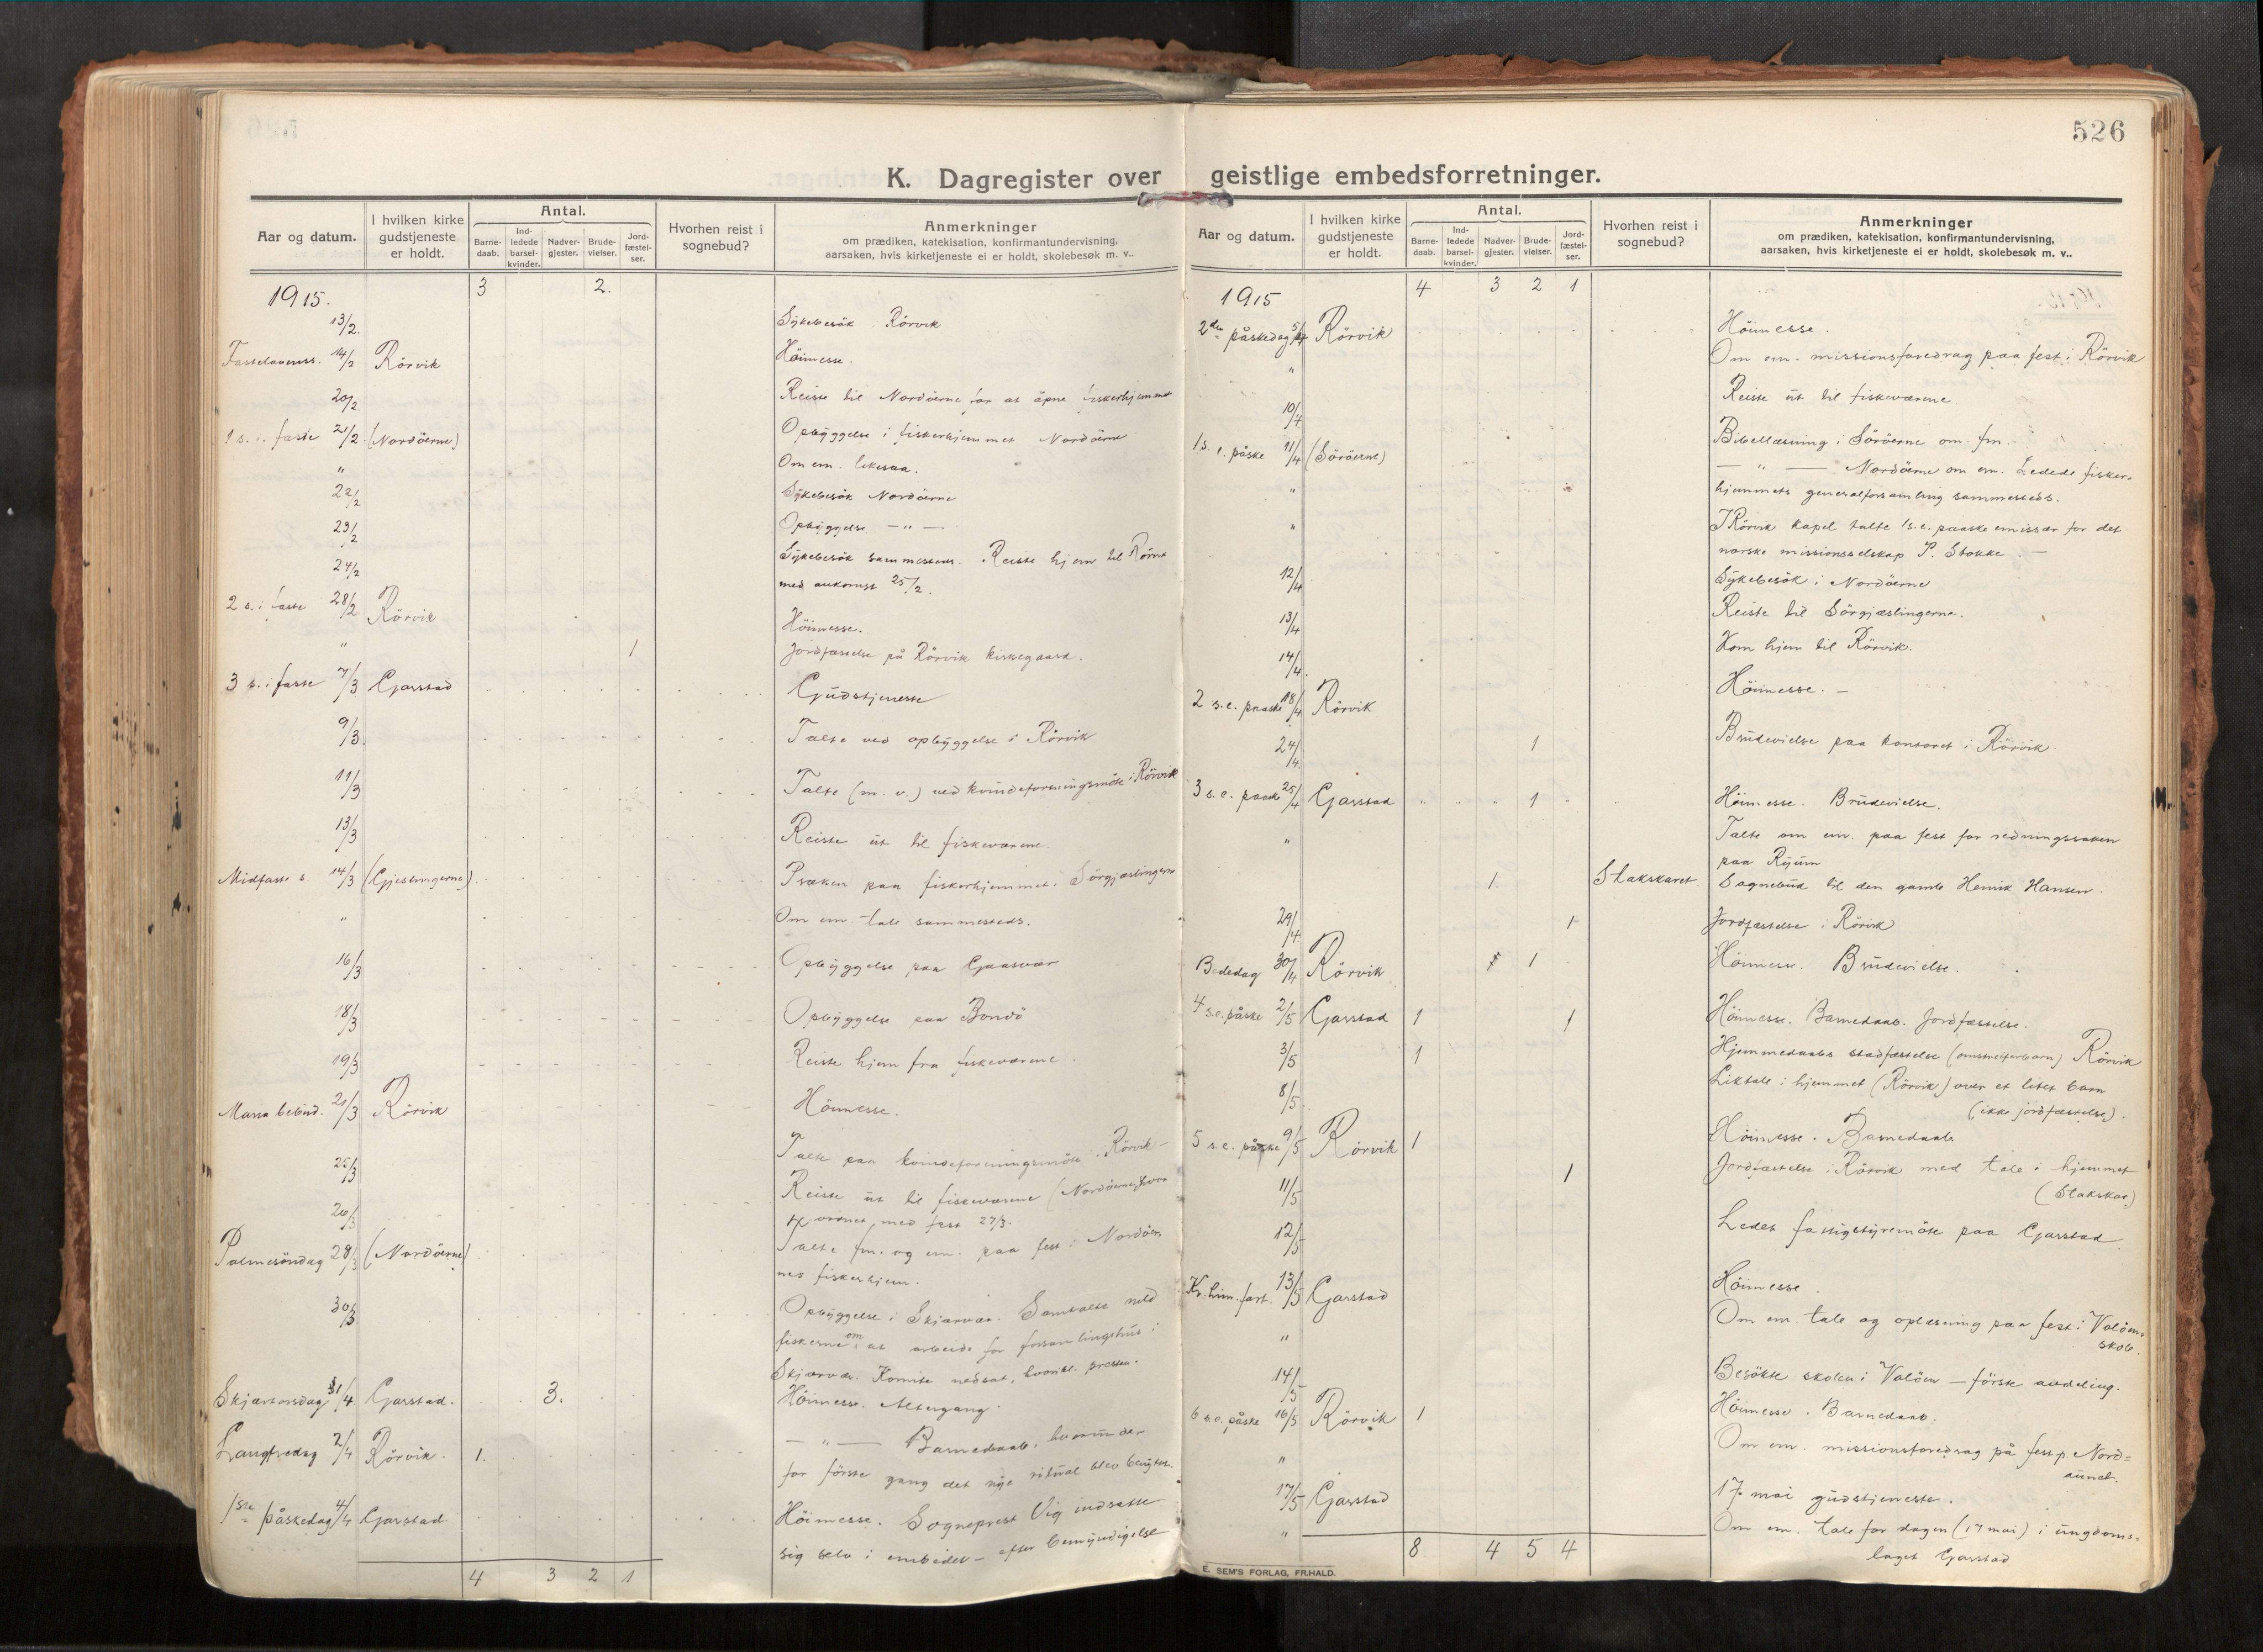 526
K. Dagregister over geistlige embedsforretninger.
Aar og datum. I hvilken kirke gudstjeneste er holdt. Antal. Barnedaab. Indledede barselkvinder. Nadvergjester. Brudevielser. Jordfæstelser. Hvorhen reist i sognebud? Anmerkninger om prædiken, katekisation, konfirmantundervisning, aarsaken, hvis kirketjeneste ei er holdt, skolebesøk m. v..
1915. 3 2.
13/2. Sykebesök Rörvik
14/2 Rörvik Höimesse.
20/2 Reiste til Nordöerne for at åpne fiskerhjemmet
1 s. i faste 21/2. (Nordöerne) Opbyggelse i fiskerhjemmet Nordöerne
" Om em. likesaa.
22/2 Sykebesök Nordöerne
23/2 Opbyggelse — " —
24/2 Sykebesök sammesteds. Reiste hjem til Rörvik
med ankomst 25/2.
2 s. i faste 28/2 Rörvik Höimesse.
" 1 Jordfæstelse på Rörvik kirkegaard.
3 s. i faste 7/3 Garstad Gudstjeneste
9/3. Talte ved opbyggelse i Rörvik
11/3 Talte (m. v.) ved kvindeforeningsmöte i Rörvik
13/3 Reiste ut til fiskeværene.
Midfaste s. 14/3 (Gjeslingerne) Præken paa fiskerhjemmet i Sörgjæslingerne
" Om em. tale sammesteds.
16/3 Opbyggelse paa Gaasvær
18/3 Opbyggelse paa Bondö
19/3 Reiste hjem fra fiskeværene.
Maria bebud. 21/3 Rörvik Höimesse.
25/3 Talte paa kvindeforeningsmöte i Rörvik —
26/3 Reiste ut til fiskeværene (Nordöerne, hvor
ordnet med fest 27/3.
Palmesöndag 28/3 (Nordöerne) Talte fm. og em. paa fest i Nordöer-
nes fiskerhjem.
30/3 Opbyggelse i Skjærvær. Samtalte med
fiskerne om at arbeide for forsamlingshus i
Skjærvær. Komite nedsat, hvoribl. presten.
Skjærtorsdag 1/4 Garstad. 3. Höimesse. Altergang.
Langfredag 2/4 Rörvik. 1. — " — Barnedaab, hvorunder
for förste gang det nye ritual blev benyttet.
1ste påskedag 4/4 Garstad Höimesse. Sogneprest Vig indsatte
sig selv i embedet — efter bemyndigelse
4 3 2 1
Aar og datum. I hvilken kirke gudstjeneste er holdt. Antal. Barnedaab. Indledede barselkvinder. Nadvergjester. Brudevielser. Jordfæstelser. Hvorhen reist i sognebud? Anmerkninger om prædiken, katekisation, konfirmantundervisning, aarsaken, hvis kirketjeneste ei er holdt, skolebesøk m. v..
1915 4 3 2 1
2den påskedag 5/4 Rörvik Höimesse.
" Om em. missionsforedrag paa fest i Rörvik
10/4 Reiste ut til fiskeværene.
1 s. e. påske 11/4 (Söröerne) Bibellæsning i Söröerne om fm. —
" — " — Nordöerne om em. Ledede fisker-
hjemmets generalforsamling sammesteds.
" I Rörvik kapel talte 1 s. e. paaske emissær for det
norske missionsselskap P. Stokke. —
12/4 Sykebesök i Nordöerne
13/4 Reiste til Sörgjæslingerne.
14/4. Kom hjem til Rörvik.
2 s. e. paaske 18/4 Rörvik Höimesse. —
24/4 1 Brudevielse paa kontoret i Rörvik.
3 s. e. paaske 25/4 Garstad 1 Höimesse. Brudevielse.
" Talte om em. paa fest for redningssaken
paa Ryum
1. Stakskaret. Sognebud til den gamle Henrik Hansen.
29/4 1 Jordfæstelse i Rörvik
Bededag 30/4 Rörvik 1 Höimesse. Brudevielse.
4 s. e. påske 2/5 Garstad 1 1 Höimesse. Barnedaab. Jordfæstelse.
3/5 1 Hjemmedaabs stadfæstelse (omstreiferbarn) Rörvik
8/5 Liktale i hjemmet (Rörvik) over et litet barn
(ikke jordfæstelse).
5 s. e. påske 9/5 Rörvik 1 Höimesse. Barnedaab
11/5 1 Jordfæstelse i Rörvik med tale i hjemmet
(Stakskar.)
12/5 Ledet fattigstyremöte paa Garstad.
Kr. him. fart. 13/5 Garstad Höimesse.
" Om em. tale og oplæsning paa fest i Valöen
skole.
14/5 Besökte skolen i Valöen — förste avdeling.
6 s. e. påske 16/5 Rörvik 1 Höimesse. Barnedaab.
" Om em. missionsforedrag på fest p. Nord=
aunet.
17/5 Garstad 17. mai gudstjeneste.
" Om em. tale for dagen (17 mai) i ungdoms-
laget Garstad
8 4 5 4
E. SEM'S FORLAG, FR.HALD.